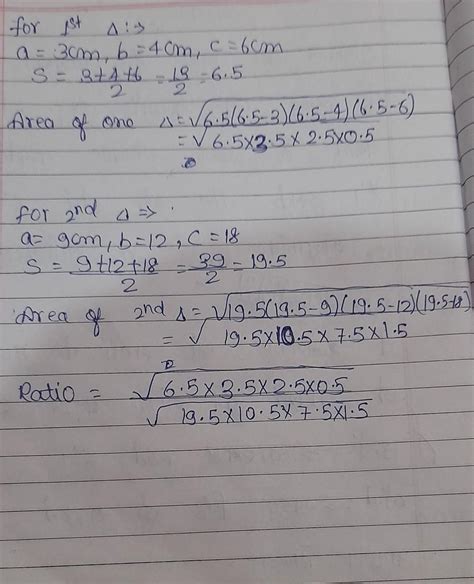 for 1st Δ:⇒
a = 3cm, b = 4cm, c = 6cm
S = 3+4+6/2 = 13/2 = 6.5
Area of one Δ = √6.5(6.5-3)(6.5-4)(6.5-6)
= √6.5×3.5×2.5×0.5
for 2nd Δ ⇒
a= 9cm, b=12, c=18
S = 9+12+18/2 = 39/2 = 19.5
Area of 2nd Δ = √19.5(19.5-9)(19.5-12)(19.5-18)
= √19.5×10.5×7.5×1.5
Ratio = √6.5×3.5×2.5×0.5/√19.5×10.5×7.5×1.5